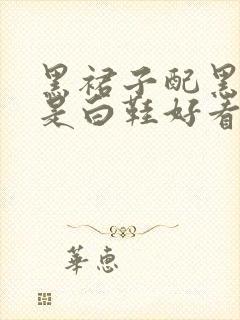 黑裙子配黑
是白鞋好看
華惠